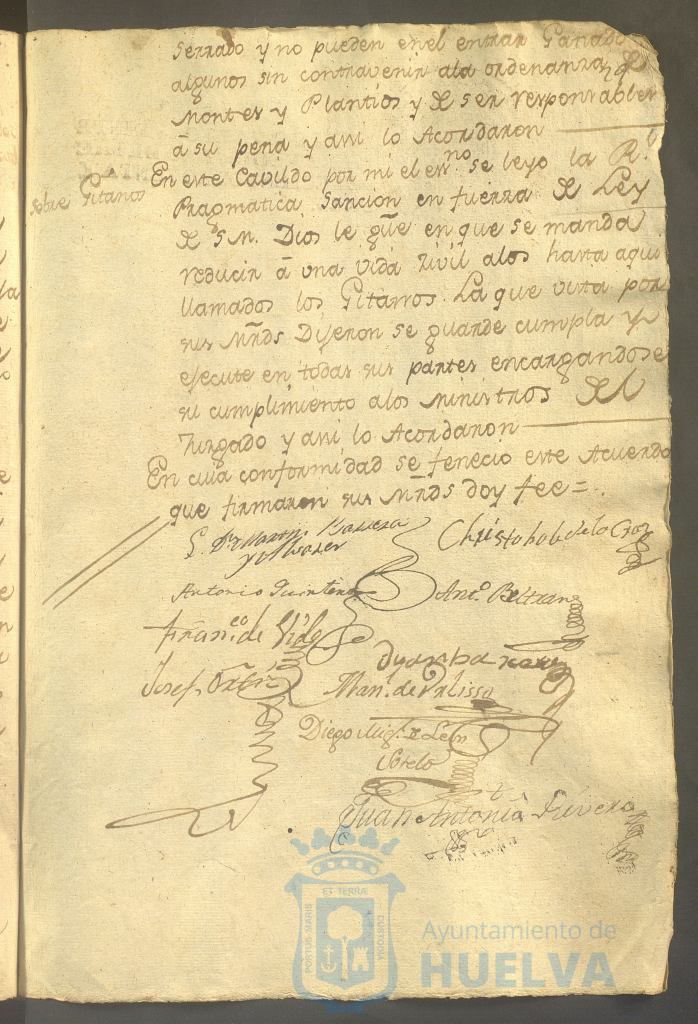 serrado y no pueden en el entrar Ganado
algunos sin contravenir ala ordenanza de
Montes y Plantios y de ser responsables
â su pena y assi lo Acordaron
sobre Gitanos
En este Cavildo por mi el essno se leyo la Rl
Pragmatica Sancion en fuerza de Ley
de S.M. Dios le gũe en que se manda
reducir â una vida Zivil alos hasta aqui
llamados los Gitanos. La que vista por
sus Mr̃ds Dijeron se guarde cumpla y
ejecute en todas sus partes encargandose
su cumplimiento alos Ministros del
Juzgado y assi lo Acordaron
En cuia conformidad se fenecio este Acuerdo
que firmaron sus Mr̃ds doy fee=
Christobal de la Cruz
Antonio Quintero
Anto Beltran
Franco de Vides
Josef
Man. de
Diego Migl de Leon
Sotelo
Juan Antonio Rivera
ET TERRÆ
PORTUS MARIS
CUSTODIA
Ayuntamiento de
HUELVA